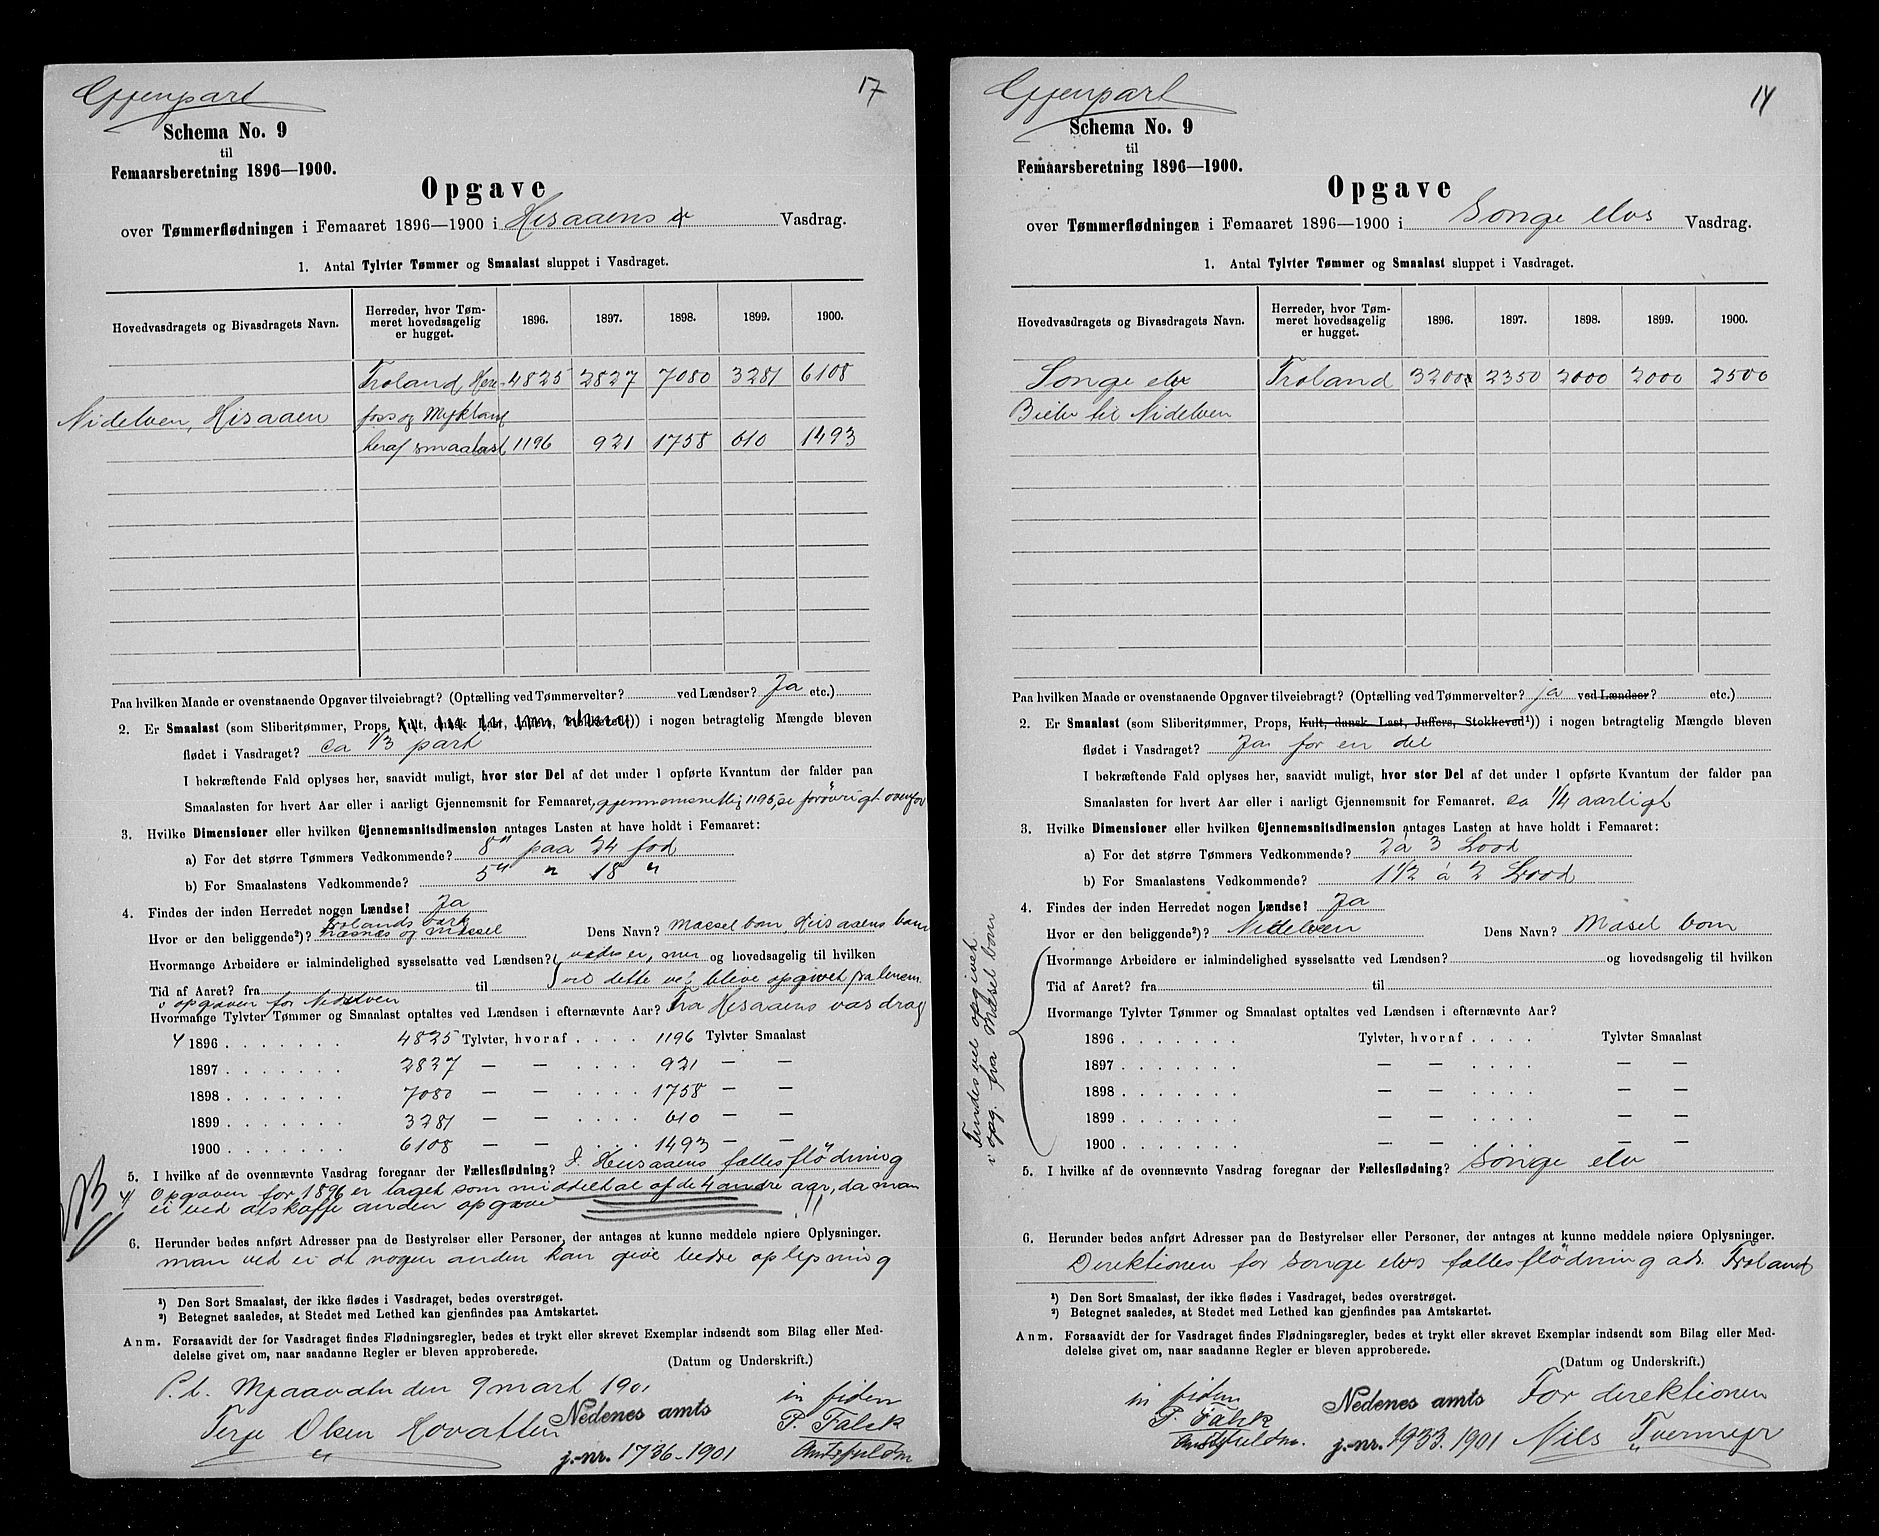 Gjenpart
17
Schema No. 9
til
Femaarsberetning 1896—1900.
Opgave
over Tømmerflødningen i Femaaret 1896—1900 i Hisaaens Vasdrag.
1. Antal Tylvter Tømmer og Smaalast sluppet i Vasdraget.
Hovedvasdragets og Bivasdragets Navn. Herreder, hvor Tømmeret hovedsagelig er hugget. 1896. 1897. 1898. 1899. 1900.
Froland, Here- 4825 2827 7080 3281 6108
Nidelven, Hisaaen foss og Mykland
heraf smaalast 1196 921 1758 610 1493
Paa hvilken Maade er ovenstaaende Opgaver tilveiebragt? (Optælling ved Tømmervelter? ved Lændser? Ja etc.)
2. Er Smaalast (som Sliberitømmer, Props, Kult, dansk Last, Juffers, Stokkeved¹)) i nogen betragtelig Mængde bleven
flødet i Vasdraget? ca 1/3 part
I bekræftende Fald oplyses her, saavidt muligt, hvor stor Del af det under 1 opførte Kvantum der falder paa
Smaalasten for hvert Aar eller i aarligt Gjennemsnit for Femaaret, gjennemsnetlig 1195, se forövrigt ovenfor
3. Hvilke Dimensioner eller hvilken Gjennemsnitsdimension antages Lasten at have holdt i Femaaret:
a) For det større Tømmers Vedkommende? 8" paa 24 fod
b) For Smaalastens Vedkommende? 5" " 18 "
4. Findes der inden Herredet nogen Lændse? Ja
Hvor er den beliggende²)? Frolands værk næsnes og messel Dens Navn? Messel bom Hisaaens bom
Hvormange Arbeidere er ialmindelighed sysselsatte ved Lændsen? vides ei, men og hovedsagelig til hvilken
Tid af Aaret? fra til vil dette vel blive opgivet fra lensem.
i opgaven for Nidelven
Hvormange Tylvter Tømmer og Smaalast optaltes ved Lændsen i efternævnte Aar? Fra Hisaaens vasdrag
1896 . . . . . . . 4825 Tylvter, hvoraf . . . . 1196 Tylvter Smaalast
1897 . . . . . . . 2827 — — . . . . 921 — —
1898 . . . . . . . 7080 — — . . . . 1758 — —
1899 . . . . . . . 3281 — — . . . . 610 — —
1900 . . . . . . . 6108 — — . . . . 1493 — —
5. I hvilke af de ovennævnte Vasdrag foregaar der Fællesflødning? I Hisaaens fællesflödning
NB Opgaven for 1896 er taget som middeltal af de 4 andre aar, da man
ei ved at skaffe anden opgave !!
6. Herunder bedes anført Adresser paa de Bestyrelser eller Personer, der antages at kunne meddele nøiere Oplysninger.
man ved ei at nogen anden kan give bedre oplysning
¹) Den Sort Smaalast, der ikke flødes i Vasdraget, bedes overstrøget.
²) Betegnet saaledes, at Stedet med Lethed kan gjenfindes paa Amtskartet.
Anm. Forsaavidt der for Vasdraget findes Flødningsregler, bedes et trykt eller skrevet Exemplar indsendt som Bilag eller Meddelelse givet om, naar saadanne Regler er bleven approberede.
(Datum og Underskrift.)
P.t. Mjaavatn den 9 mart 1901
Terje Olsen Hovatten
Nedenes amts
j.-nr. 1736-1901
in fidem
P. Falck
Amtsfuldm
Gjenpart
14
Schema No. 9
til
Femaarsberetning 1896—1900.
Opgave
over Tømmerflødningen i Femaaret 1896—1900 i Songe elvs Vasdrag.
1. Antal Tylvter Tømmer og Smaalast sluppet i Vasdraget.
Hovedvasdragets og Bivasdragets Navn. Herreder, hvor Tømmeret hovedsagelig er hugget. 1896. 1897. 1898. 1899. 1900.
Songe elv Froland 3200 2350 2000 2000 2500
Bielv til Nidelven
Paa hvilken Maade er ovenstaaende Opgaver tilveiebragt? (Optælling ved Tømmervelter? ja ved Lændser? etc.)
2. Er Smaalast (som Sliberitømmer, Props, Kult, dansk Last, Juffers, Stokkeved¹)) i nogen betragtelig Mængde bleven
flødet i Vasdraget? Ja for en del
I bekræftende Fald oplyses her, saavidt muligt, hvor stor Del af det under 1 opførte Kvantum der falder paa
Smaalasten for hvert Aar eller i aarligt Gjennemsnit for Femaaret. ca 1/4 aarligt
3. Hvilke Dimensioner eller hvilken Gjennemsnitsdimension antages Lasten at have holdt i Femaaret:
a) For det større Tømmers Vedkommende? 2 à 3 Lood
b) For Smaalastens Vedkommende? 1 1/2 à 2 Lood
4. Findes der inden Herredet nogen Lændse? Ja
Hvor er den beliggende²)? Nidelven Dens Navn? Mæsel bom
Hvormange Arbeidere er ialmindelighed sysselsatte ved Lændsen? og hovedsagelig til hvilken
Tid af Aaret? fra til
Hvormange Tylvter Tømmer og Smaalast optaltes ved Lændsen i efternævnte Aar?
1896 . . . . . . . Tylvter, hvoraf . . . . Tylvter Smaalast
1897 . . . . . . . — — . . . . — —
1898 . . . . . . . — — . . . . — —
1899 . . . . . . . — — . . . . — —
1900 . . . . . . . — — . . . . — —
Findes vel opgivet
i opg. fra Mæsel bom
5. I hvilke af de ovennævnte Vasdrag foregaar der Fællesflødning? Songe elv
6. Herunder bedes anført Adresser paa de Bestyrelser eller Personer, der antages at kunne meddele nøiere Oplysninger.
Direktionen for Songe elvs fællesflödning adr. Froland
¹) Den Sort Smaalast, der ikke flødes i Vasdraget, bedes overstrøget.
²) Betegnet saaledes, at Stedet med Lethed kan gjenfindes paa Amtskartet.
Anm. Forsaavidt der for Vasdraget findes Flødningsregler, bedes et trykt eller skrevet Exemplar indsendt som Bilag eller Meddelelse givet om, naar saadanne Regler er bleven approberede.
(Datum og Underskrift.)
in fidem
P. Falck
Amtsfuldm.
Nedenes amts
j.-nr. 1933. 1901
For direktionen
Nils Tvermyr